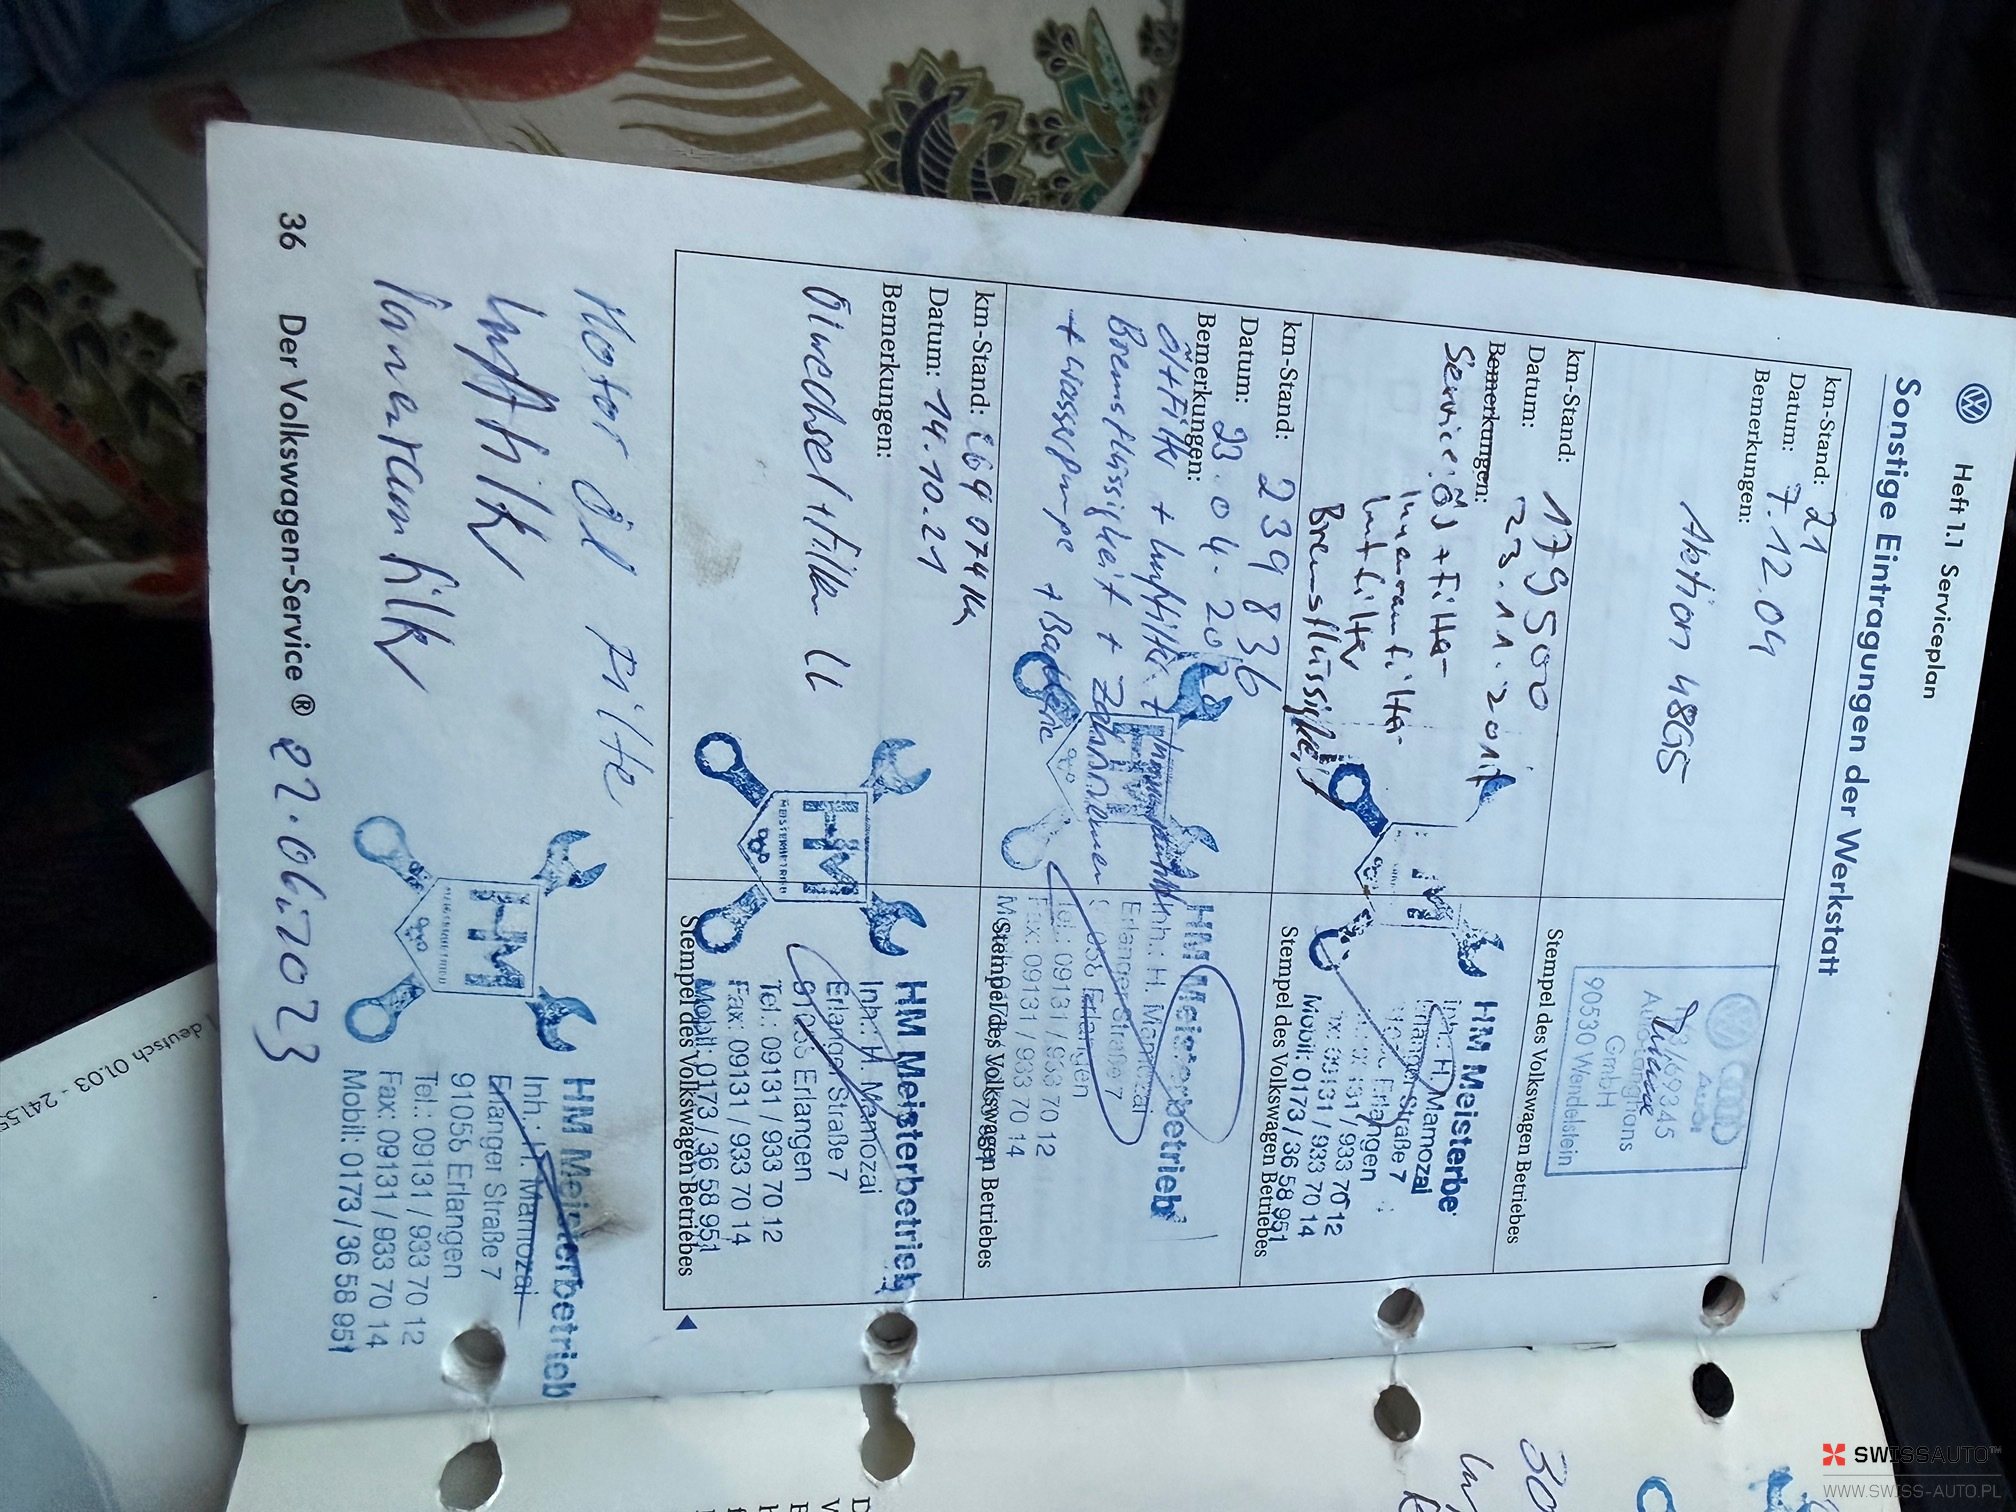 Heft 1.1 Serviceplan
Sonstige Eintragungen der Werkstatt
km-Stand: 21
Datum: 7.12.04
Bemerkungen:
Aktion 48G5
Audi
GmbH
90530 Wendelstein
Stempel des Volkswagen Betriebes
km-Stand: 179500
Datum: 23.11.2017
Bemerkungen:
Service: Öl + Filter
Innenraumfilter
Luftfilter
Bremsflüssigkeit
HM Meisterbe
Inh.: H. Mamozai
Erlanger Straße 7
Erlangen
0131 / 933 70 12
Fax: 09131 / 933 70 14
Mobil: 0173 / 36 58 951
Stempel des Volkswagen Betriebes
km-Stand: 239 836
Datum: 23.04.20
Bemerkungen:
Öl+Filter + Luftfilter +
Bremsflüssigkeit + Zahnriemen
+ Wasserpumpe + Batterie
HM
HM Meisterbetrieb
Inh.: H. Mamozai
Erlanger Straße 7
91058 Erlangen
Tel.: 09131 / 933 70 12
Fax: 09131 / 933 70 14
Stempel des Volkswagen Betriebes
km-Stand: 269 074 km
Datum: 14.10.21
Bemerkungen:
Ölwechsel + Filter LL
HM
MEISTERBETRIEB
HM Meisterbetrieb
Inh.: H. Mamozai
Erlanger Straße 7
91058 Erlangen
Tel.: 09131 / 933 70 12
Fax: 09131 / 933 70 14
Mobil: 0173 / 36 58 951
Stempel des Volkswagen Betriebes
Motor Öl Filte
Luftfilter
Innenraumfilter
HM
MEISTERBETRIEB
HM Meisterbetrieb
Inh.: H. Mamozai
Erlanger Straße 7
91058 Erlangen
Tel.: 09131 / 933 70 12
Fax: 09131 / 933 70 14
Mobil: 0173 / 36 58 951
36 Der Volkswagen-Service ® 27.06.2023
deutsch 01.03 - 2415
30
SWISSAUTO™
WWW.SWISS-AUTO.PL